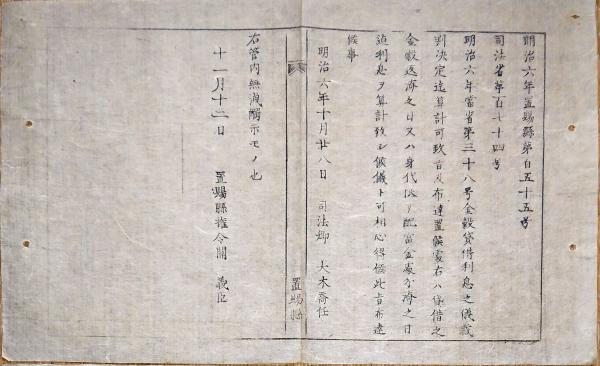 明治六年置賜縣第百五十五号
司法省第百七十四号
明治六年當省第三十八号金穀貸借利息之儀裁
判決定迄算計可致旨及布達置候處右ハ貸借之
金穀返濟之日又ハ身代限リ配當金處分濟之日
迄利息ヲ算計致シ候儀ト可相心得候此旨布達
候事
明治六年十月廿八日 司法卿 大木喬任
置賜縣
右管内無洩觸示モノ也
十一月十二日 置賜縣権令關 義臣